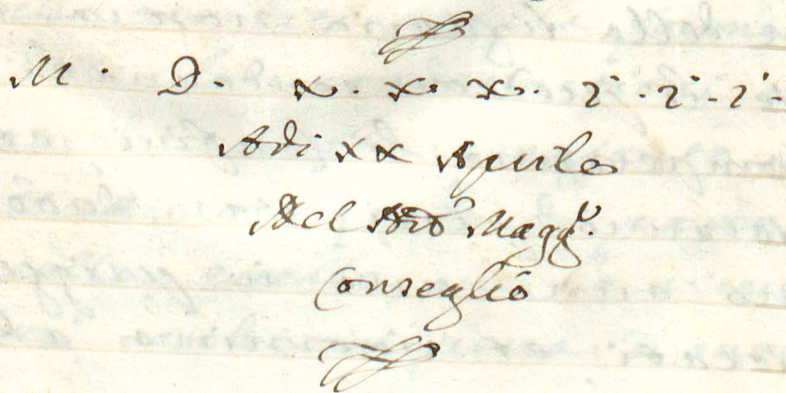 M. D. x. x. x. i. i. i.
Adi xx Aprile
Nel Magg.r
Conseglio